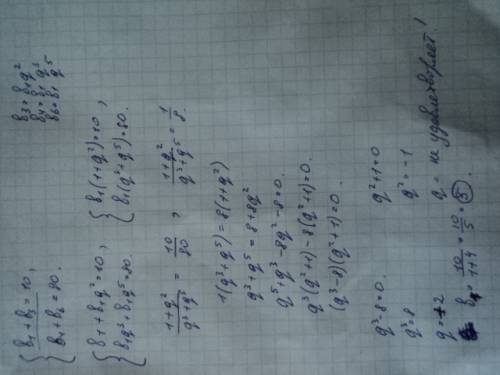 { b₁ + b₃ = 10,
b₁ + b₂ = 80.
b₃ = b₁q²
b₄ = b₁q³
b₆ = b₁q⁵
{ b₁ + b₁q² = 10,
b₁q³ + b₁q⁵ = 80.
{ b₁(1+q²) = 10,
b₁(q³+q⁵) = 80.
(1+q²)/(q³+q⁵) = 10/80 , (1+q²)/(q³+q⁵) = 1/8.
1(q³+q⁵) = 8(1+q²)
q³+q⁵ = 8+8q²
q⁵+q³-8q²-8=0.
q³(q²+1)-8(q²+1)=0.
(q³-8)(q²+1)=0.
q³-8=0. q²+1=0
q³=8 q²=-1
q=2 q = не удовлетворяет!
b₁ = 10/(1+4) = 10/5 = 5.